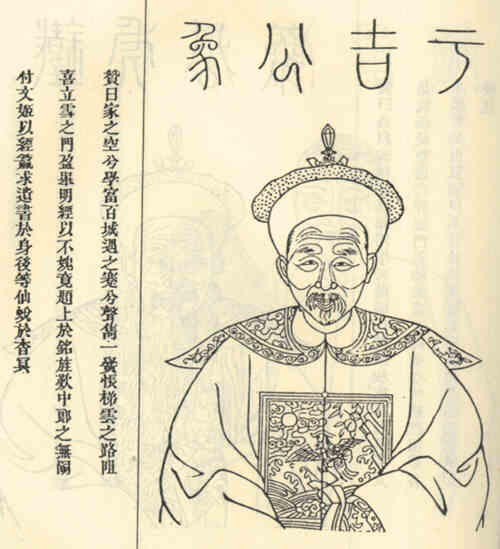 吉公象
贊曰家之空兮學富百城遇之蹇兮聲雋一黌悵梯雲之路阻
喜立雪之門盈舉明經以不媿竟題上於銘旌歎中郎之無嗣
付文姬以經求遺書於身後等仙蛻於杳冥